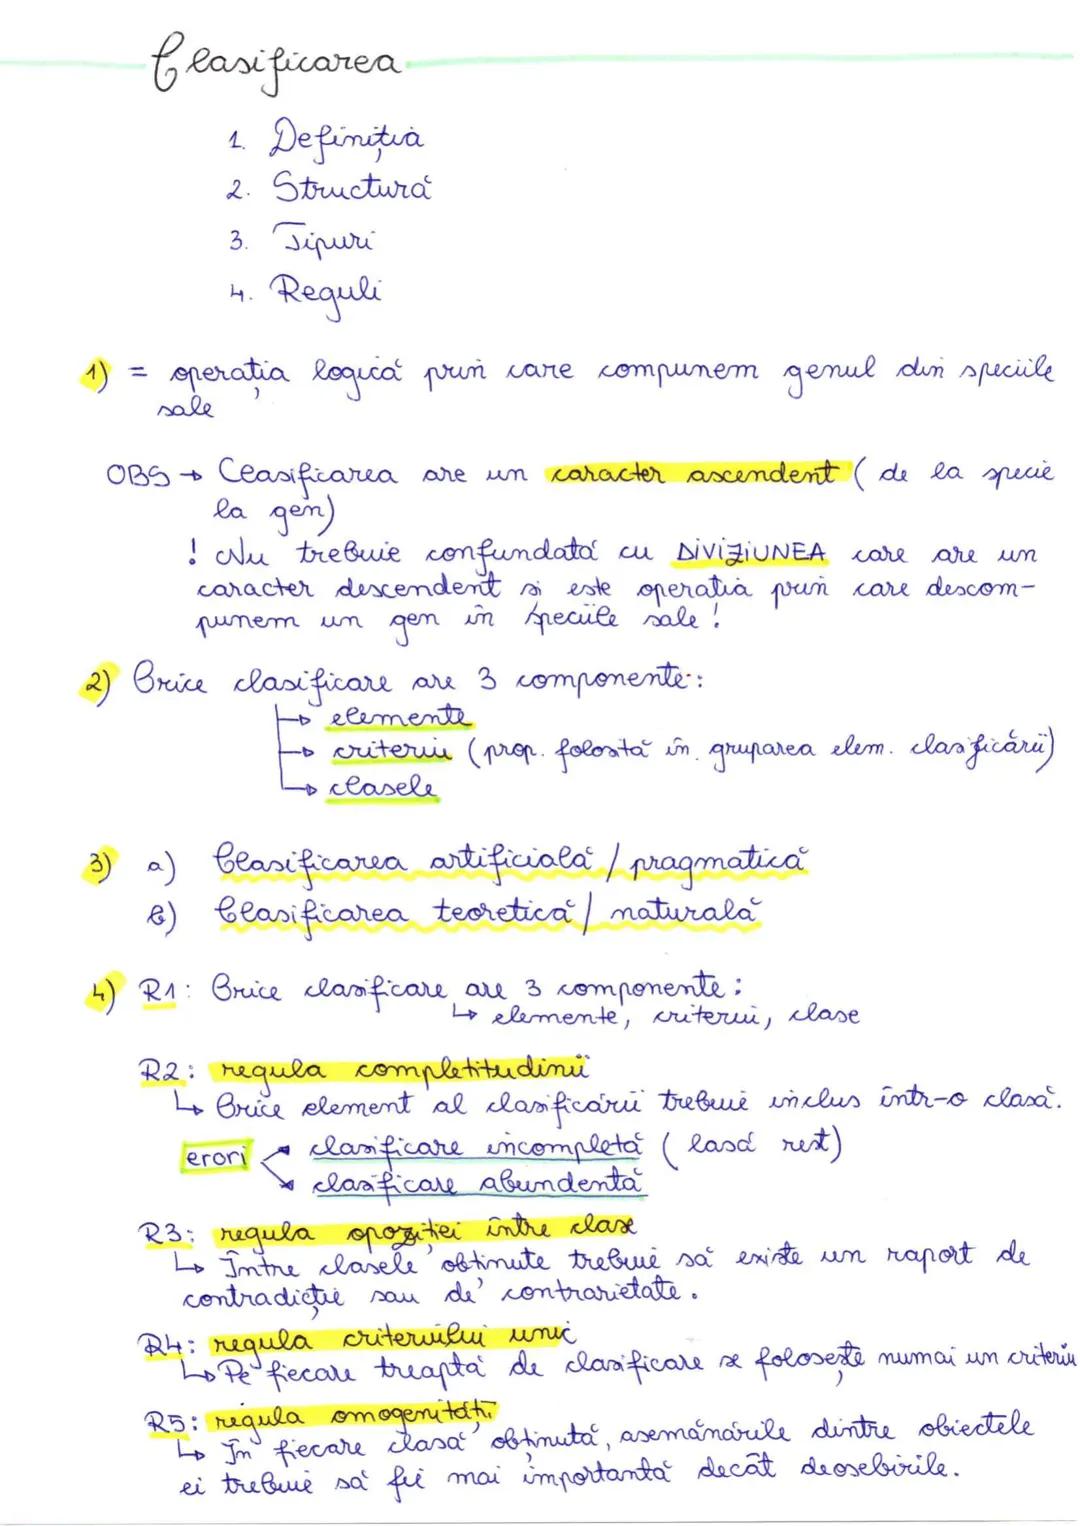 Clasificarea
1. Definiția
2. Structură
3. Tipuri
4. Reguli
1) = operația logică prin care compunem genul din speciile
sale
OBS → Clasificarea are un caracter ascendent (de la specie
la gen)
! Nu trebuie confundată cu DIVIZIUNEA care are un
caracter descendent si este operatia prin care descom-
punem un gen în speciile sale!
2) Orice clasificare are 3 componente:
↳ elemente
↳ criteriu (prop. folosită în gruparea elem. clasificării)
↳ clasele
3) a) Clasificarea artificială / pragmatică
b) Clasificarea teoretică / naturală
4) R1: Orice clasificare are 3 componente:
↳ elemente, criteriu, clase
R2: regula completitudinii
↳ Orice element al clasificării trebuie inclus într-o clasă.
erori
clasificare incompletă (lasă rest)
clasificare abundentă
R3: regula opoziției între clase
↳ Între clasele obținute trebuie să existe un raport de
contradicție sau de contrarietate.
R4: regula criteriului unic
↳ Pe fiecare treaptă de clasificare se folosește numai un criteriu
R5: regula omogenității
↳ În fiecare clasă obținută, asemănările dintre obiectele
ei trebuie să fie mai importantă decât deosebirile.